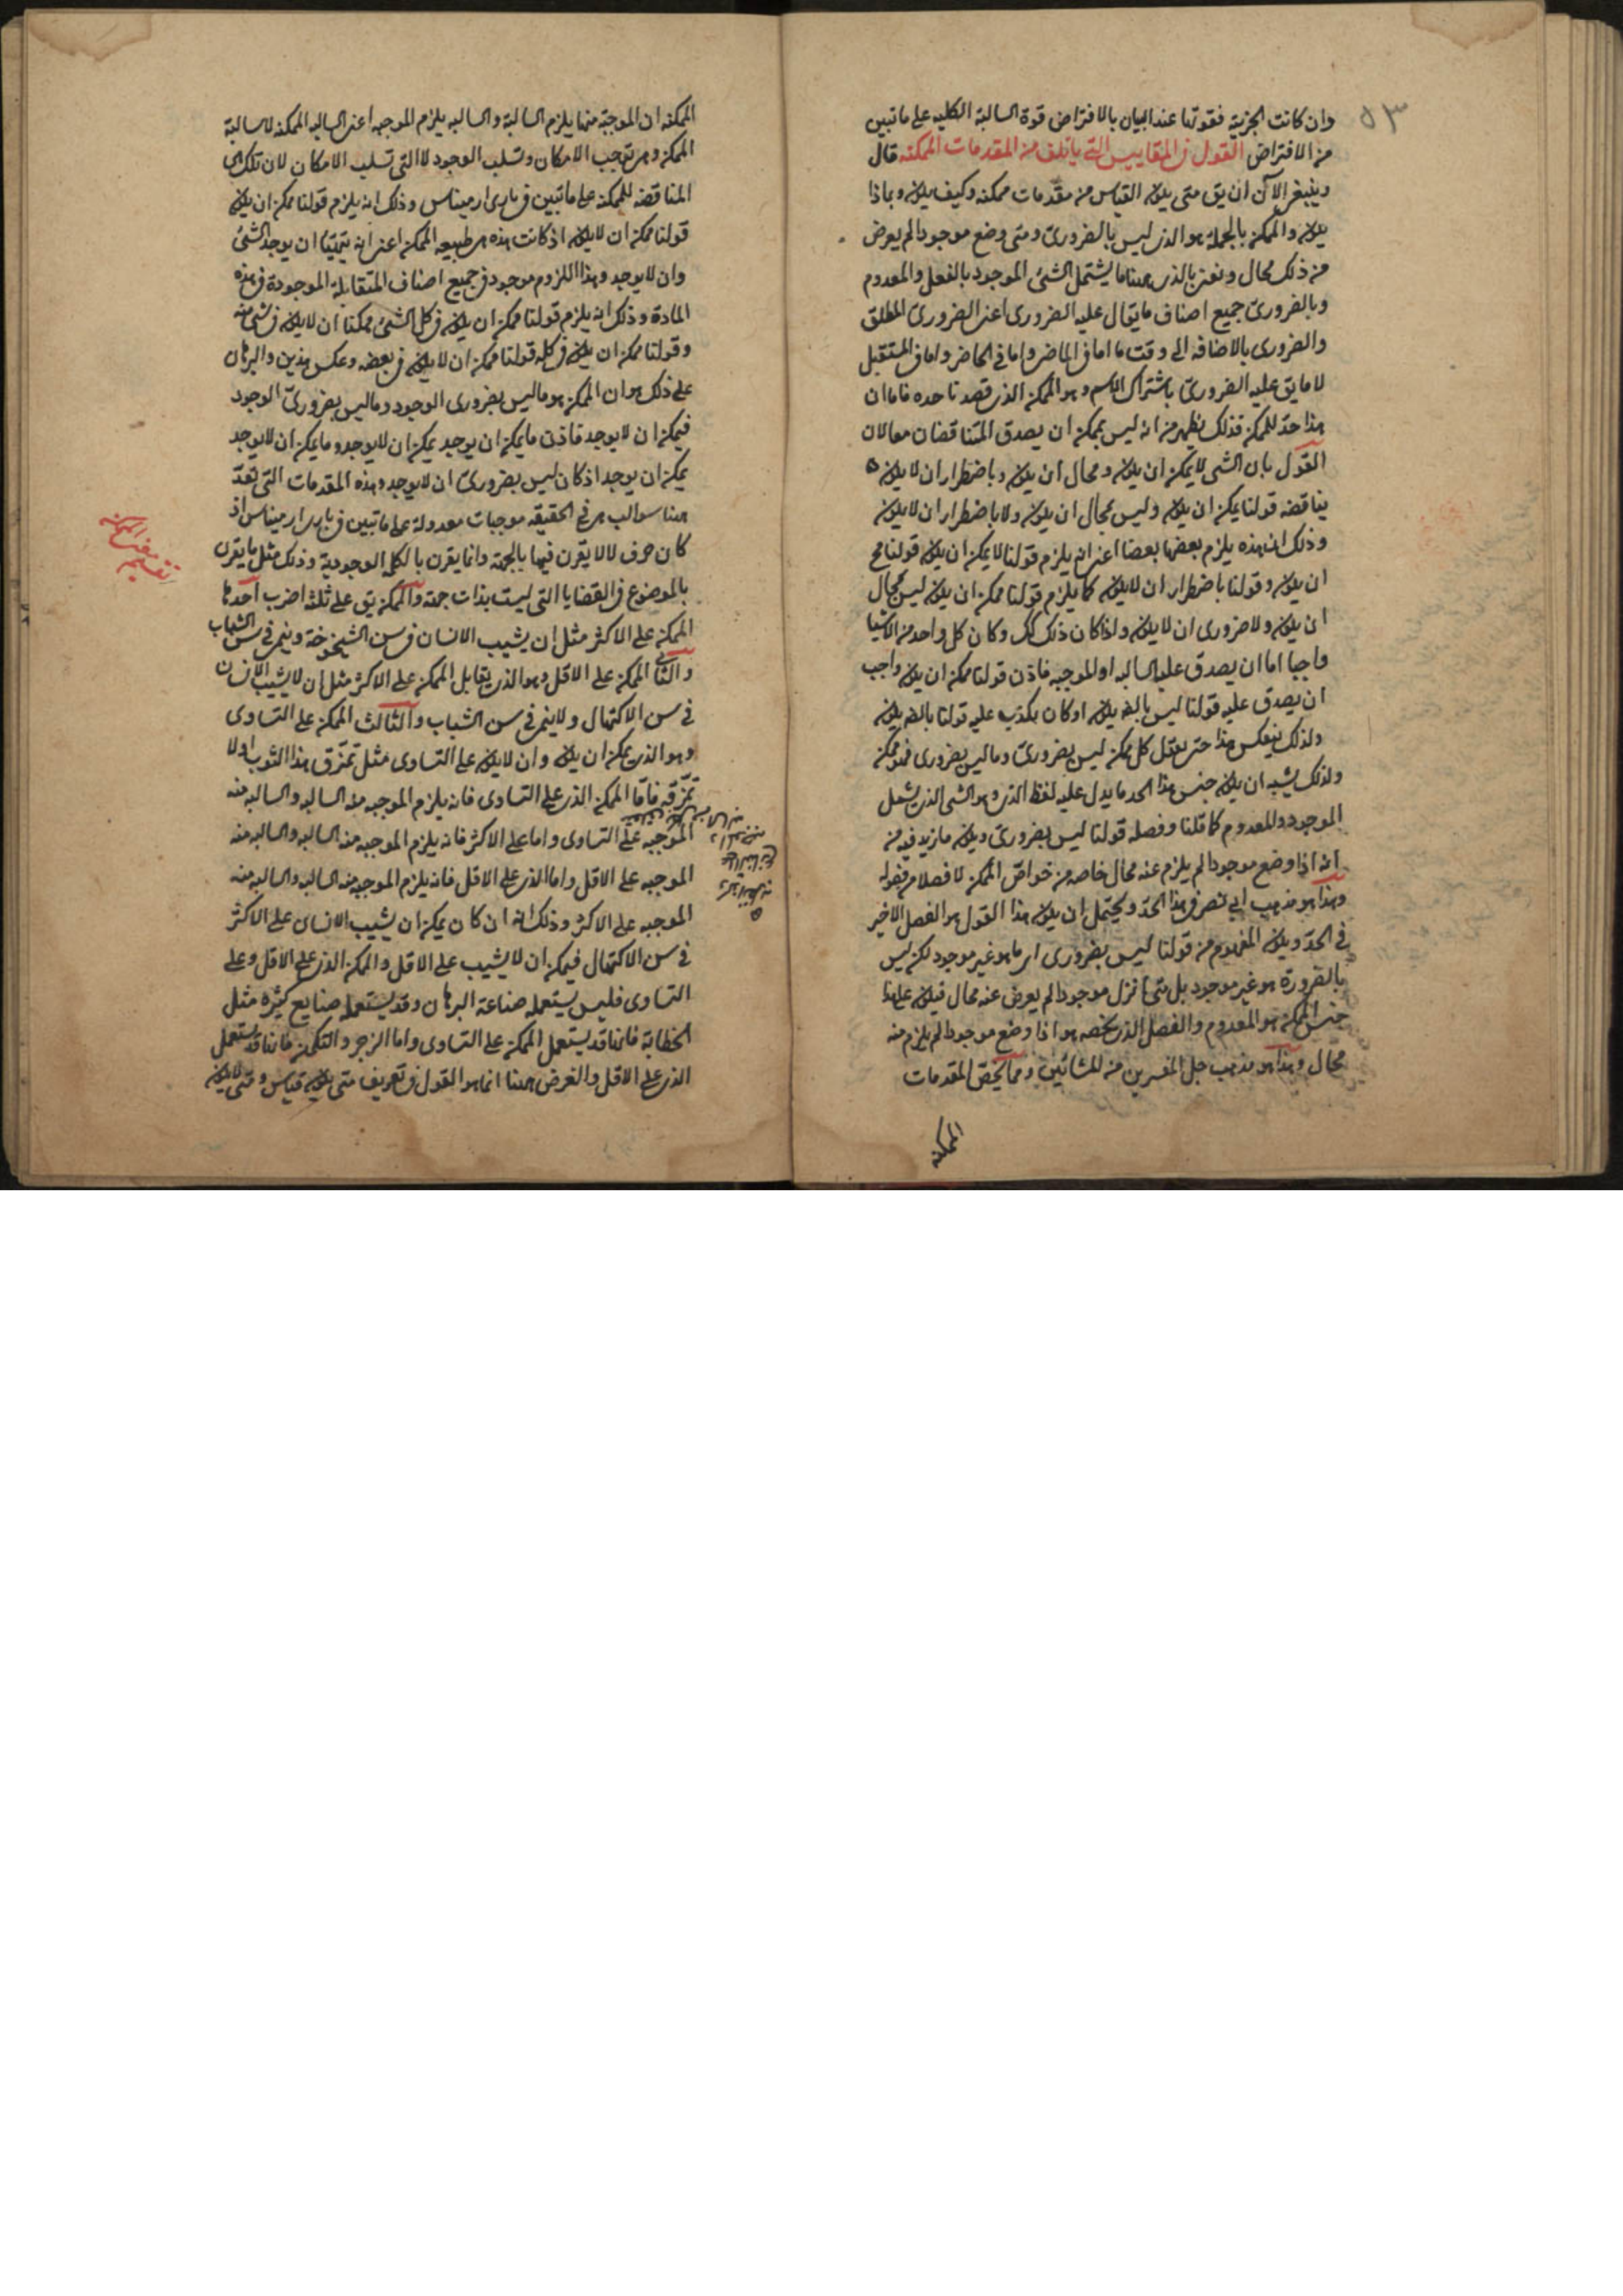 ٥٣
وان كانت الجزئية فقوتها عند البيان بالافتراض قوة السالبة الكلية على ما تبين
من الافتراض القول في المقاييس التي ياتلف من المقدمات الممكنه قال
وينبغي الآن ان يق متى يكون القياس من مقدمات ممكنه وكيف يكون وبماذا
يكون والممكن بالجملة هو الذي ليس بالضروري ومتى وضع موجودا لم يعرض
من ذلك محال ونعني بالذي ههنا ما يشتمل الشئ الموجود بالفعل والمعدوم
وبالضروري جميع اصناف ما يقال عليه الضروري اعني الضروري المطلق
والضروري بالاضافه الى وقت ما اما في الماضي واما في الحاضر واما في المستقبل
لا ما يق عليه الضروري باشتراك الاسم وهو الممكن الذي قصدنا حده فاما ان
هذا حد للممكن فذلك يظهر من انه ليس يمكن ان يصدق المتناقضان معا لان
القول بان الشي لا يمكن ان يكون ومحال ان يكون وباضطرار ان لا يكون
يناقضه قولنا يمكن ان يكون وليس بمحال ان يكون ولا باضطرار ان لا يكون
وذلك ان هذه يلزم بعضها بعضا اعني انه يلزم قولنا لا يمكن ان يكون قولنا مح
ان يكون وقولنا باضطرار ان لا يكون كما يلزم قولنا ممكن ان يكون ليس بمحال
ان يكون ولا ضروري ان لا يكون واذا كان ذلك كك وكان كل واحد من الاشيا
واجبا اما ان يصدق عليه السالبه او الموجبه فاذن قولنا ممكن ان يكون واجب
ان يصدق عليه قولنا ليس بالضر يكون او كان يكذب عليه قولنا بالضر يكون
ولذلك ينعكس هذا حتى يقل كل ممكن ليس بضروري وما ليس بضروري فهو ممكن
ولذلك يشبه ان يكون جنس هذا الحد ما يدل عليه لفظ الذي وهو الشي الذي يشمل
الموجود والمعدوم كما قلنا وفصله قولنا ليس بضروري ويكون ما زيد فيه من
انه اذا وضع موجودا لم يلزم عنه محال خاصه من خواص الممكن لا فصلا من فصوله
وهذا هو مذهب ابي نصر في هذا الحد ويحتمل ان يكون هذا القول هو الفصل الاخير
في الحد ويكون المفهوم من قولنا ليس بضروري اي ما هو غير موجود لكن ليس
بالضرورة هو غير موجود بل متى انزل موجودا لم يعرض عنه محال فيكون على هذا
جنس الممكن هو المعدوم والفصل الذي يخصه هو اذا وضع موجودا لم يلزم منه
محال وهذا هو مذهب جل المفسرين من المشائين ومما يخص المقدمات
الممكنه
الممكنه ان الموجبة منها يلزم السالبة والسالبه يلزم الموجبه اعني السالبه الممكنه لا سالبة
الممكن وهي توجب الامكان وتسلب الوجود لا التي تسلب الامكان لان تلك هي
المناقضه للممكنه على ما تبين في باري ارميناس وذلك انه يلزم قولنا ممكن ان يكون
قولنا ممكن ان لا يكون اذ كانت هذه هي طبيعه الممكن اعني انه يتهيأ ان يوجد الشئ
وان لا يوجد وهذا اللزوم موجود في جميع اصناف المتقابلة الموجودة في هذه
المادة وذلك انه يلزم قولنا ممكن ان يكون في كل الشئ ممكنا ان لا يكون في شي منه
وقولنا ممكن ان يكون في كله قولنا ممكن ان لا يكون في بعضه وعكس هذين والبرهان
على ذلك هو ان الممكن هو ما ليس بضروري الوجود وما ليس بضروري الوجود
فيمكن ان لا يوجد فاذن ما يمكن ان يوجد يمكن ان لا يوجد وما يمكن ان لا يوجد
يمكن ان يوجد اذ كان ليس بضروري ان لا يوجد وهذه المقدمات التي تعد
ههنا سوالب هي في الحقيقه موجبات معدولة على ما تبين في باري ارميناس اذ
كان حرف لا لا يقرن فيها بالجهة وانما يقرن بالكلم الوجودية وذلك مثل ما يقرن
بالموضوع في القضايا التي ليست بذات جهة والممكن يق على ثلثه اضرب احدها
الممكن على الاكثر مثل ان يشيب الانسان في سن الشيخوخة وينمي في سن الشباب
والثاني الممكن على الاقل وهو الذي يقابل الممكن على الاكثر مثل ان لا يشيب الانسان
في سن الاكتهال ولا ينمي في سن الشباب والثالث الممكن على التساوي
وهو الذي يمكن ان يكون وان لا يكون على التساوي مثل تمزق هذا الثوب او لا
تمزقه فاما الممكن الذي على التساوي فانه يلزم الموجبه منه السالبه والسالبه منه
الموجبه على التساوي واما على الاكثر فانه يلزم الموجبه منه السالبه والسالبه منه
الموجبه على الاقل واما الذي على الاقل فانه يلزم الموجبه منه السالبه والسالبه منه
الموجبه على الاكثر وذلك انه ان كان يمكن ان يشيب الانسان على الاكثر
في سن الاكتهال فيمكن ان لا يشيب على الاقل والممكن الذي على الاقل وعلى
التساوي فليس يستعمله صناعة البرهان وقد يستعمله صنايع كثيره مثل
الخطابة فانها قد يستعمل الممكن على التساوي واما الزجر والتكهن فانها قد يستعمل
الذي على الاقل والغرض ههنا انما هو القول في تعريف متى يكون قياس ومتى لا يكون